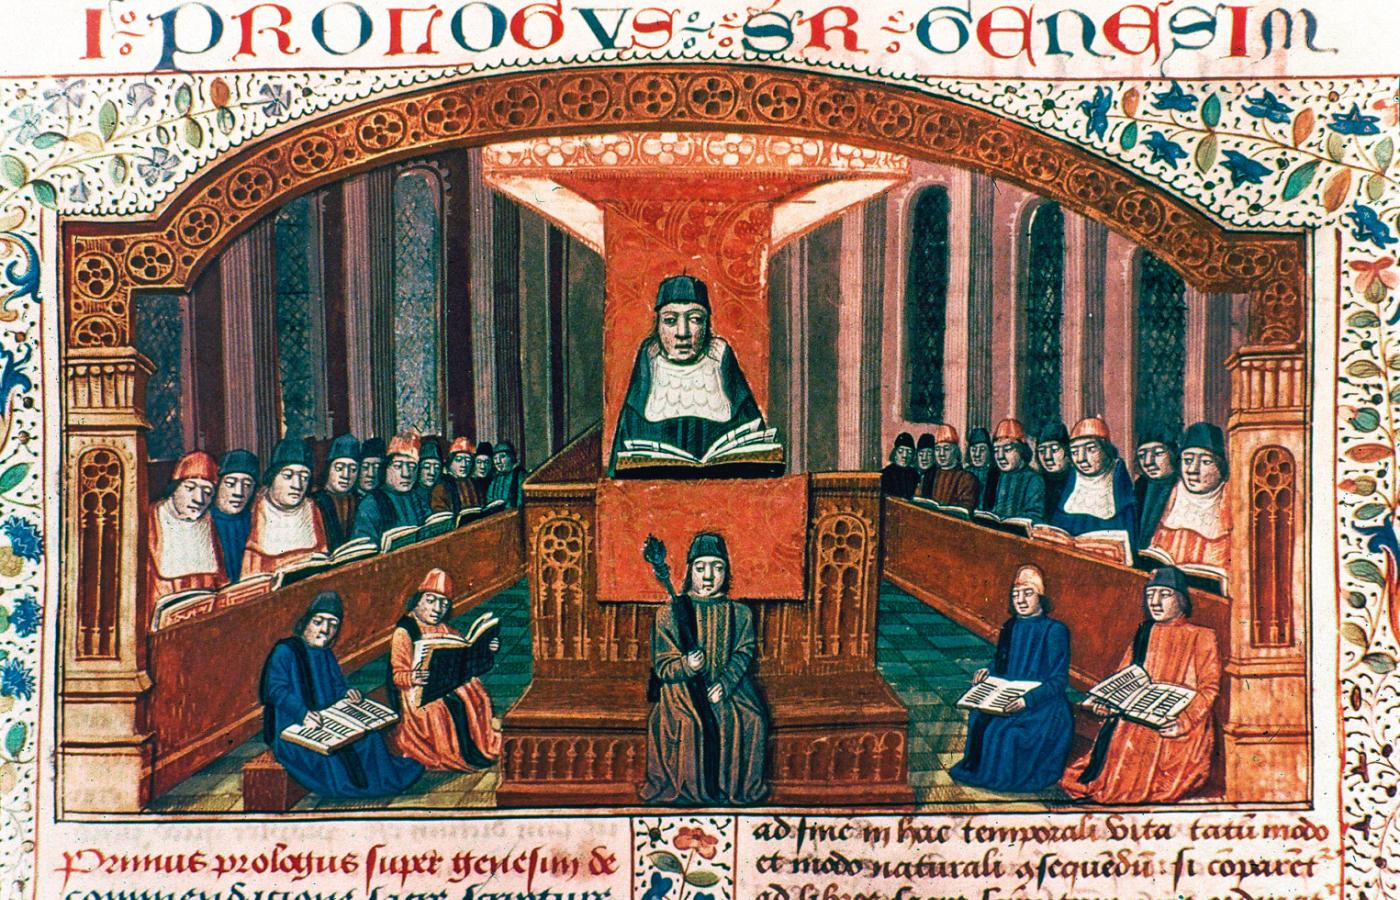 I PROLOGVS SR GENESIM
Primus prologus super genesim de
commendacione sacre scripture
ad sine in hac temporali vita tatū modo
et modo naturali ꝯsequēdū si cōparet
ad libros